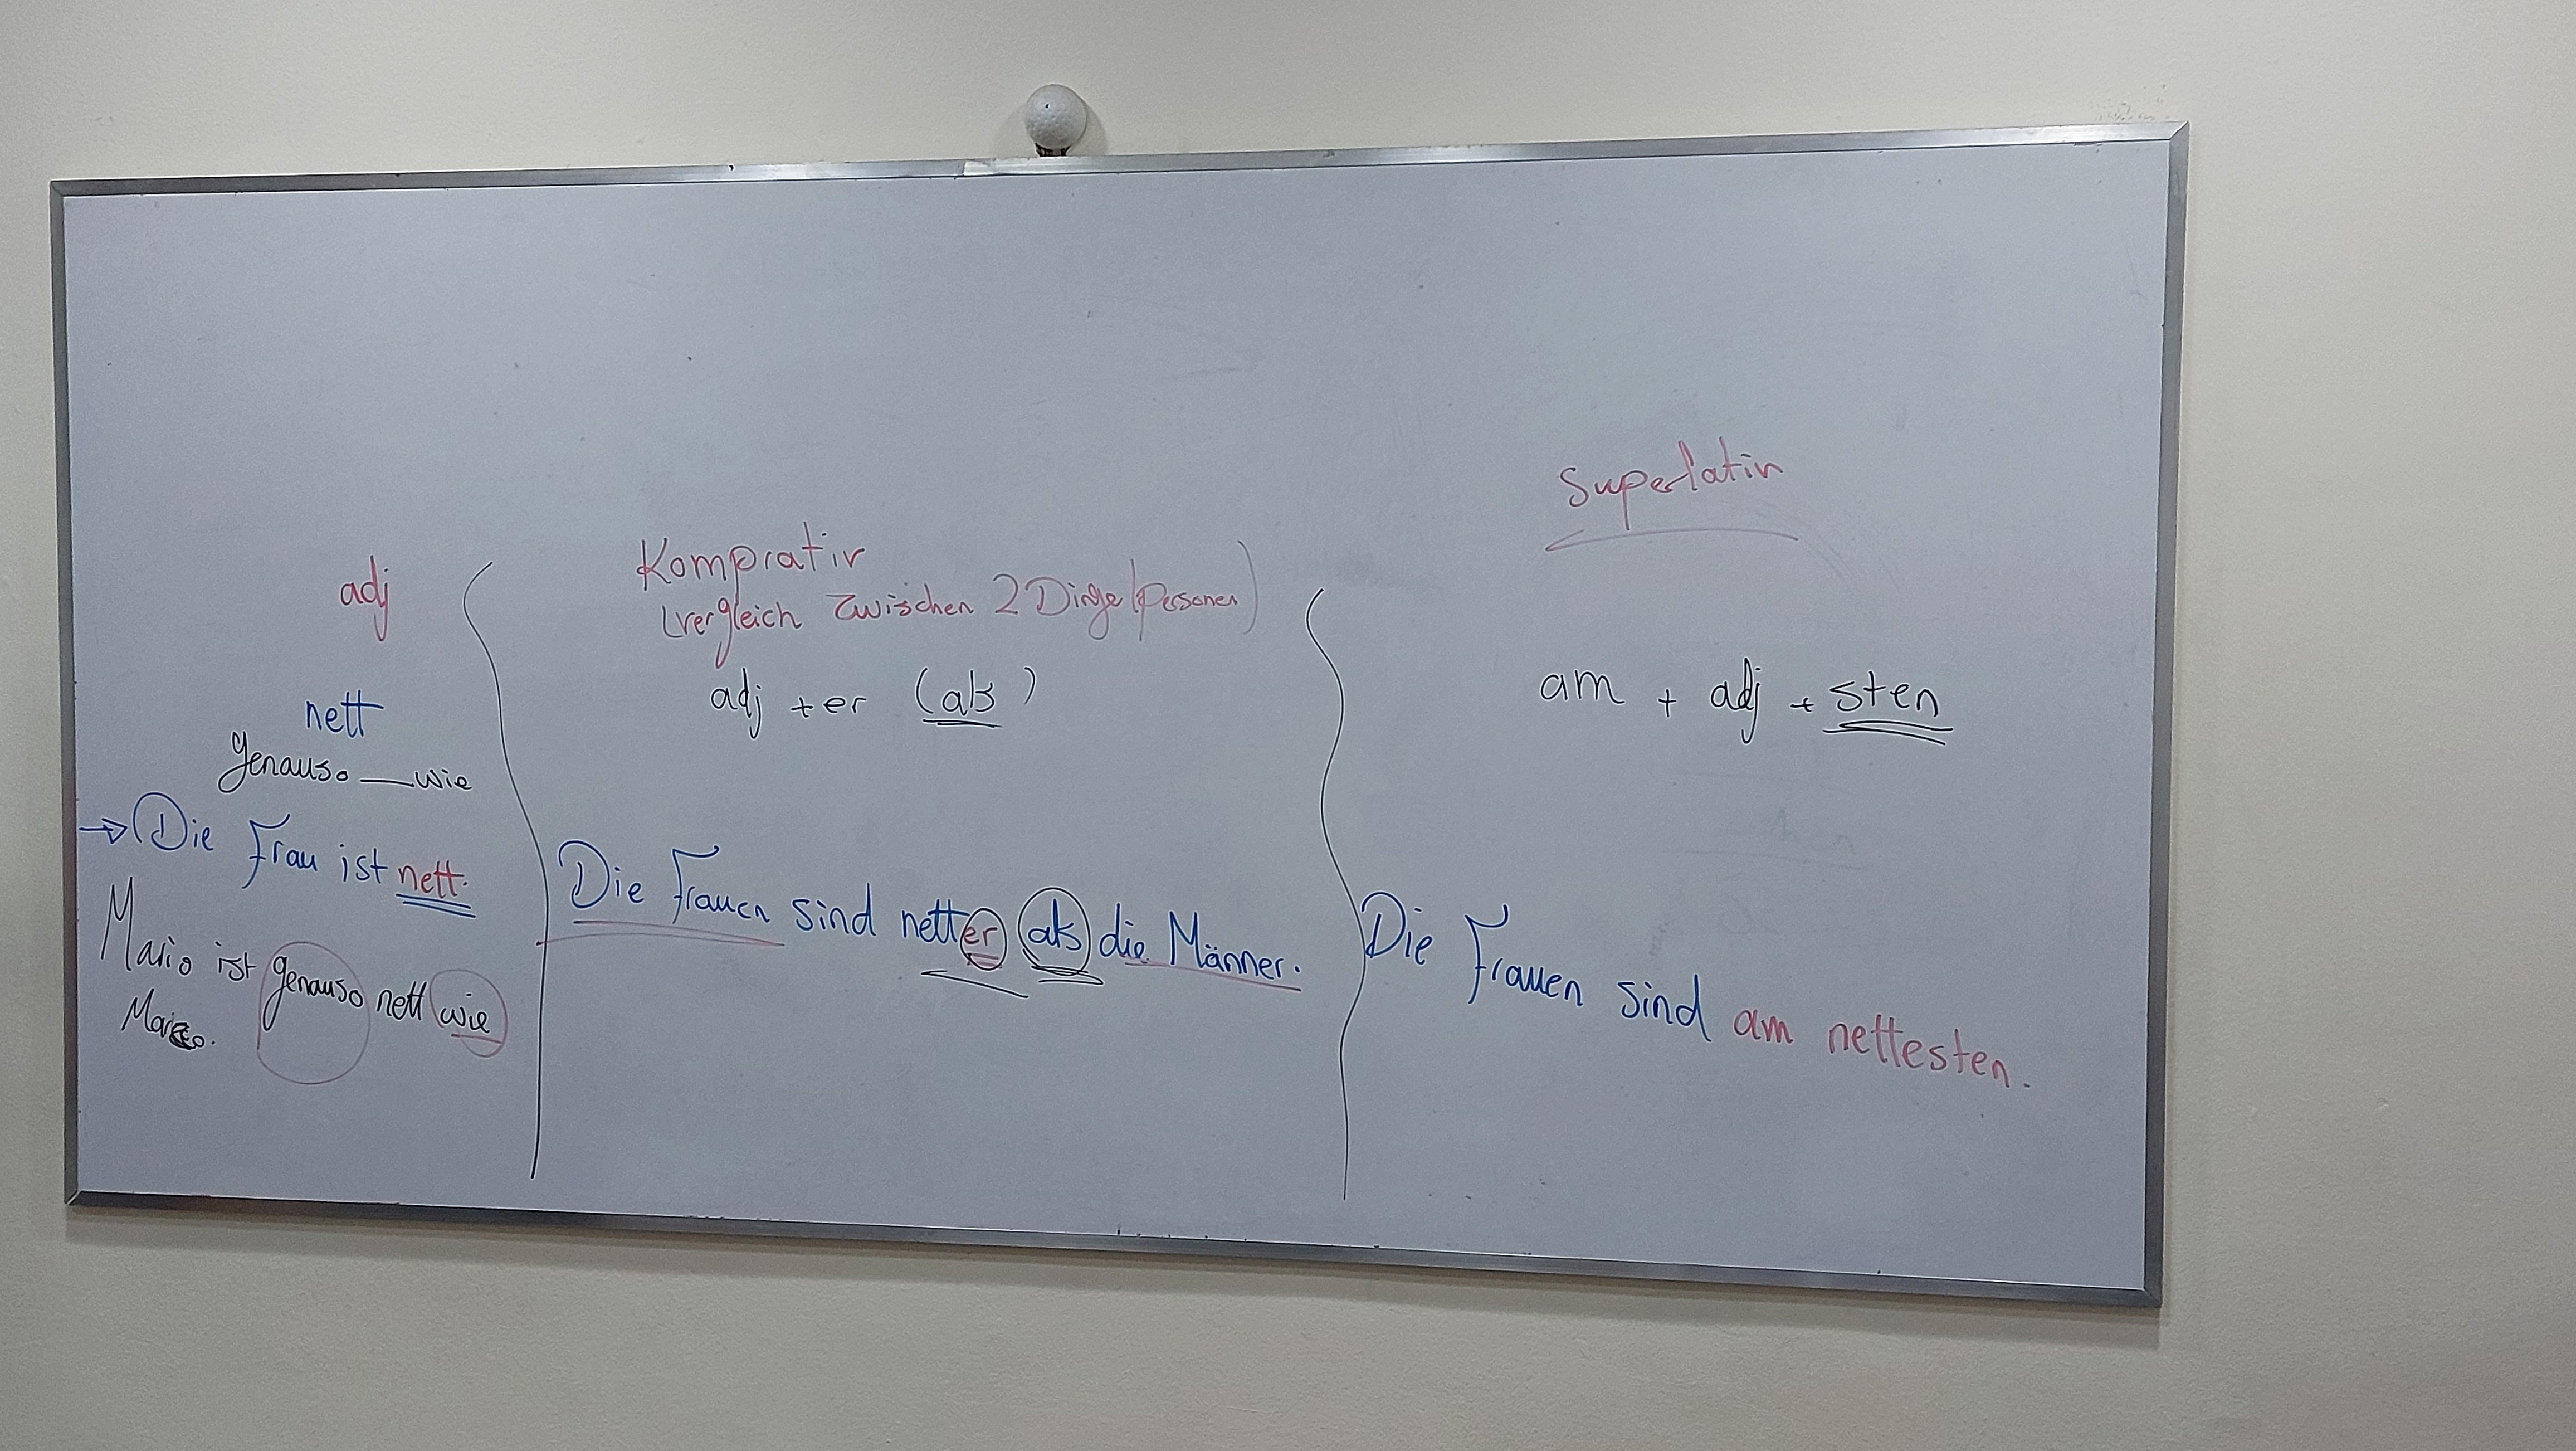 adj
nett
genauso __ wie
→ Die Frau ist nett.
Mario ist genauso nett wie
Komprativ
(vergleich zwischen 2 Dinge/Personen)
adj + er (als)
Die Frauen sind netter als die Männer.
Superlativ
am + adj + sten
Die Frauen sind am nettesten.